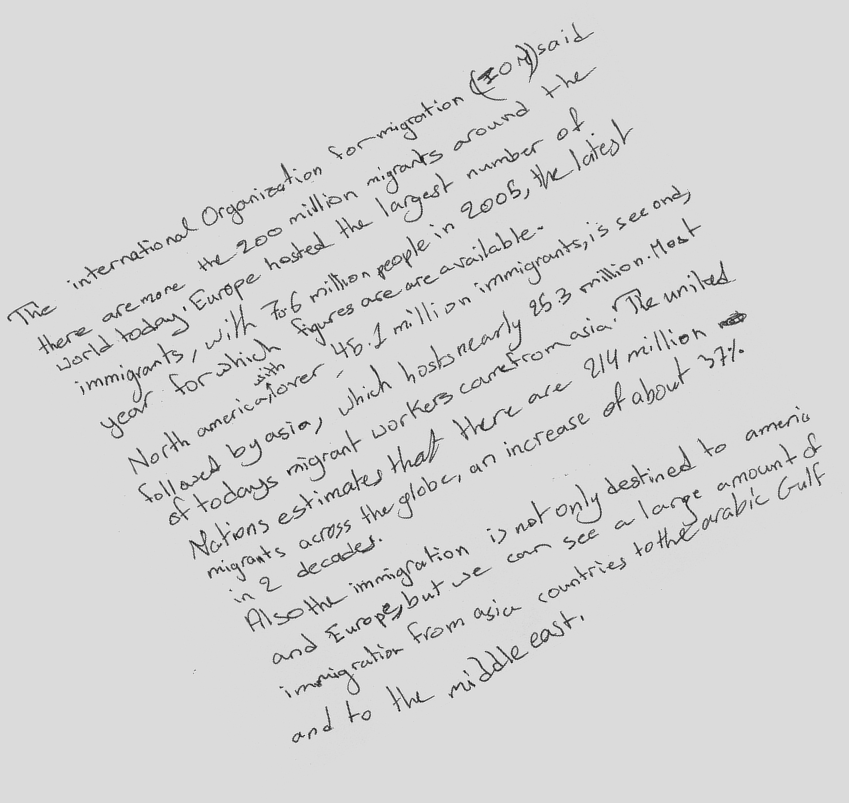 The international Organization for migration (IOM) said
there are more the 200 million migrants around the
world today. Europe hosted the largest number of
immigrants, with 70.6 million people in 2005, the latest
year for which figures are are available.
North america, with over 45.1 million immigrants, is second,
followed by asia, which hosts nearly 25.3 million. Most
of todays migrant workers come from asia. The united
Nations estimates that there are 214 million
migrants across the globe, an increase of about 37%
in 2 decades.
Also the immigration is not only destined to america
and Europe, but we can see a large amount of
immigration from asia countries to the arabic Gulf
and to the middle east.